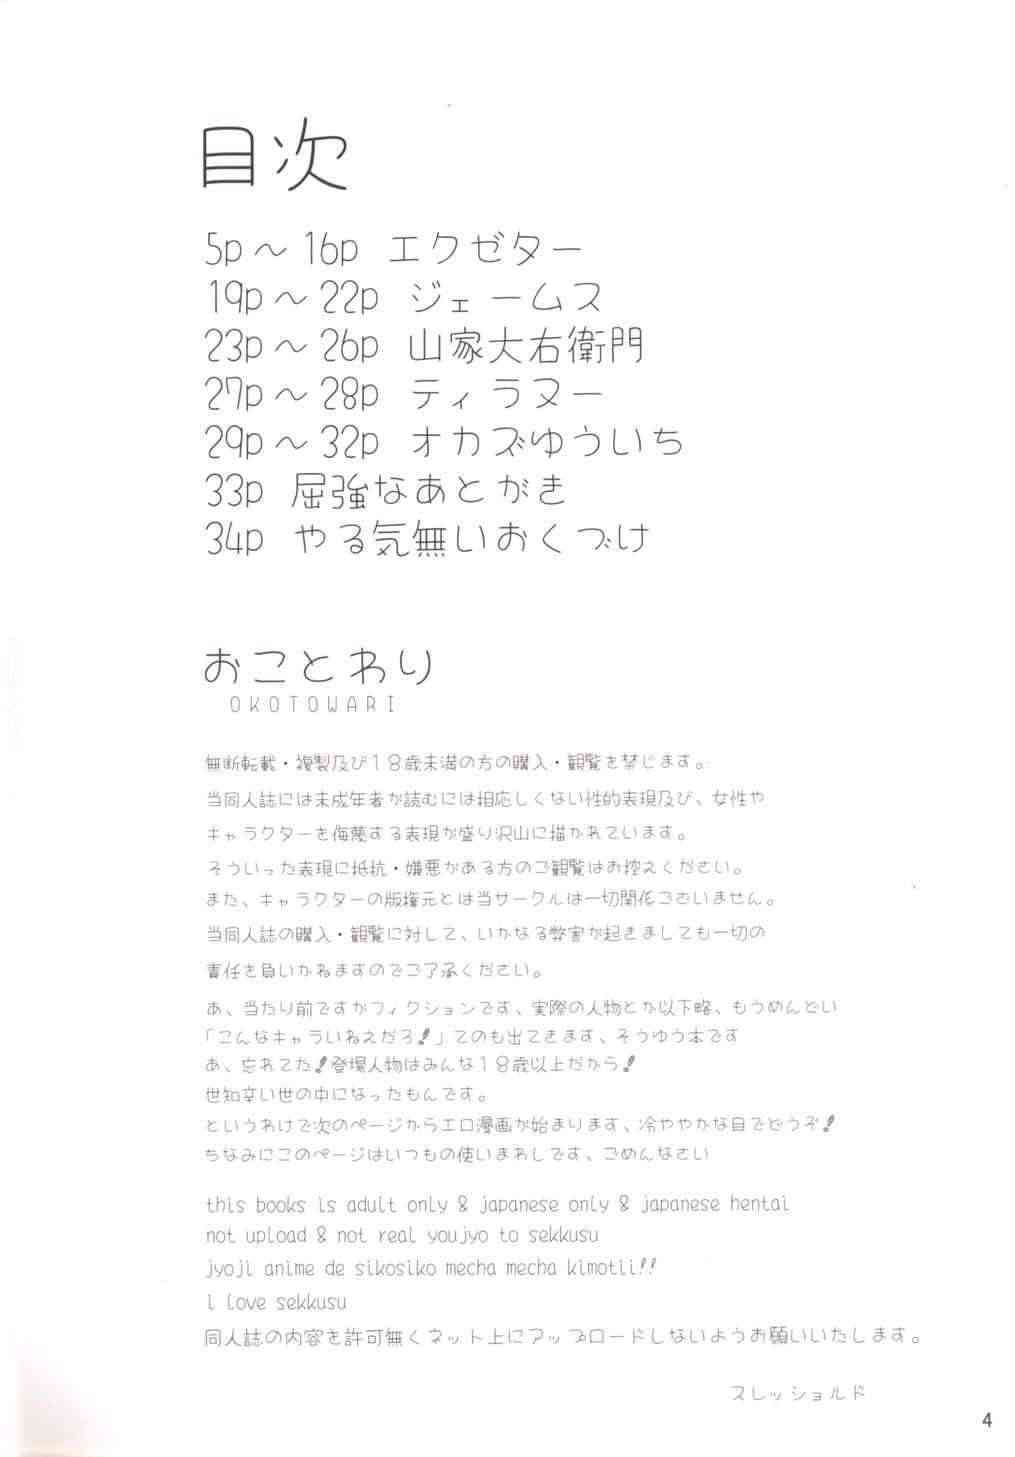 目次
5p～16p エクゼター
19p～22p ジェームス
23p～26p 山家大右衛門
27p～28p ティラヌー
29p～32p オカズゆういち
33p 屈強なあとがき
34p やる気無いおくづけ
おことわり
OKOTOWARI
無断転載・複製及び１８歳未満の方の購入・観覧を禁じます。
当同人誌には未成年者が読むには相応しくない性的表現及び、女性や
キャラクターを侮蔑する表現が盛り沢山に描かれています。
そういった表現に抵抗・嫌悪がある方のご観覧はお控えください。
また、キャラクターの版権元とは当サークルは一切関係ございません。
当同人誌の購入・観覧に対して、いかなる弊害が起きましても一切の
責任を負いかねますのでご了承ください。
あ、当たり前ですがフィクションです、実際の人物とか以下略、もうめんどい
「こんなキャラいねえだろ！」てのも出てきます、そうゆう本です
あ、忘れてた！登場人物はみんな１８歳以上だから！
世知辛い世の中になったもんです。
というわけで次のページからエロ漫画が始まります、冷ややかな目でどうぞ！
ちなみにこのページはいつもの使いまわしです、ごめんなさい
this books is adult only & japanese only & japanese hentai
not upload & not real youjyo to sekkusu
jyoji anime de sikosiko mecha mecha kimotii!!
i love sekkusu
同人誌の内容を許可無くネット上にアップロードしないようお願いいたします。
スレッショルド
4